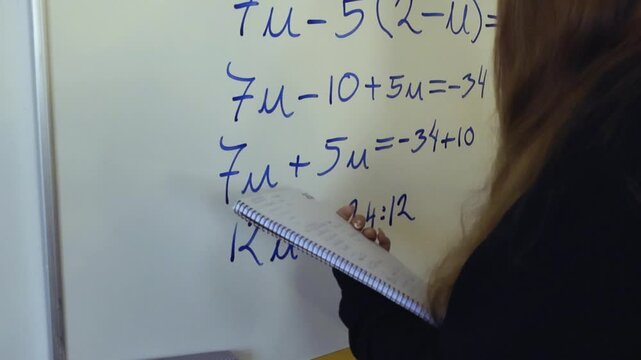 7u-5(2-u)=
7u-10+5u=-34
7u+5u=-34+10
12u 24:12